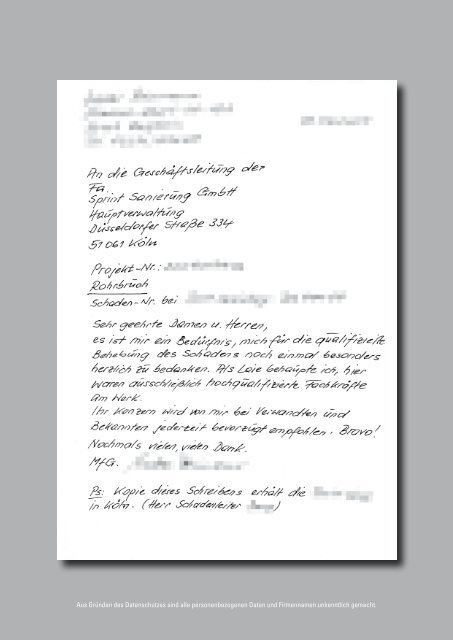 An die Geschäftsleitung der
Fa.
Sprint Sanierung GmbH
Hauptverwaltung
Düsseldorfer Straße 334
51061 Köln
Projekt-Nr.:
Rohrbruch
Schaden-Nr. bei
Sehr geehrte Damen u. Herren,
es ist mir ein Bedürfnis, mich für die qualifizierte
Behebung des Schadens noch einmal besonders
herzlich zu bedanken. Als Laie behaupte ich, hier
waren ausschließlich hochqualifizierte Fachkräfte
am Werk.
Ihr Konzern wird von mir bei Verwandten und
Bekannten jederzeit bevorzugt empfohlen. Bravo!
Nochmals vielen, vielen Dank.
MfG.
Ps: Kopie dieses Schreibens erhält die
in Köln. (Herr Schadenleiter )
Aus Gründen des Datenschutzes sind alle personenbezogenen Daten und Firmennamen unkenntlich gemacht.